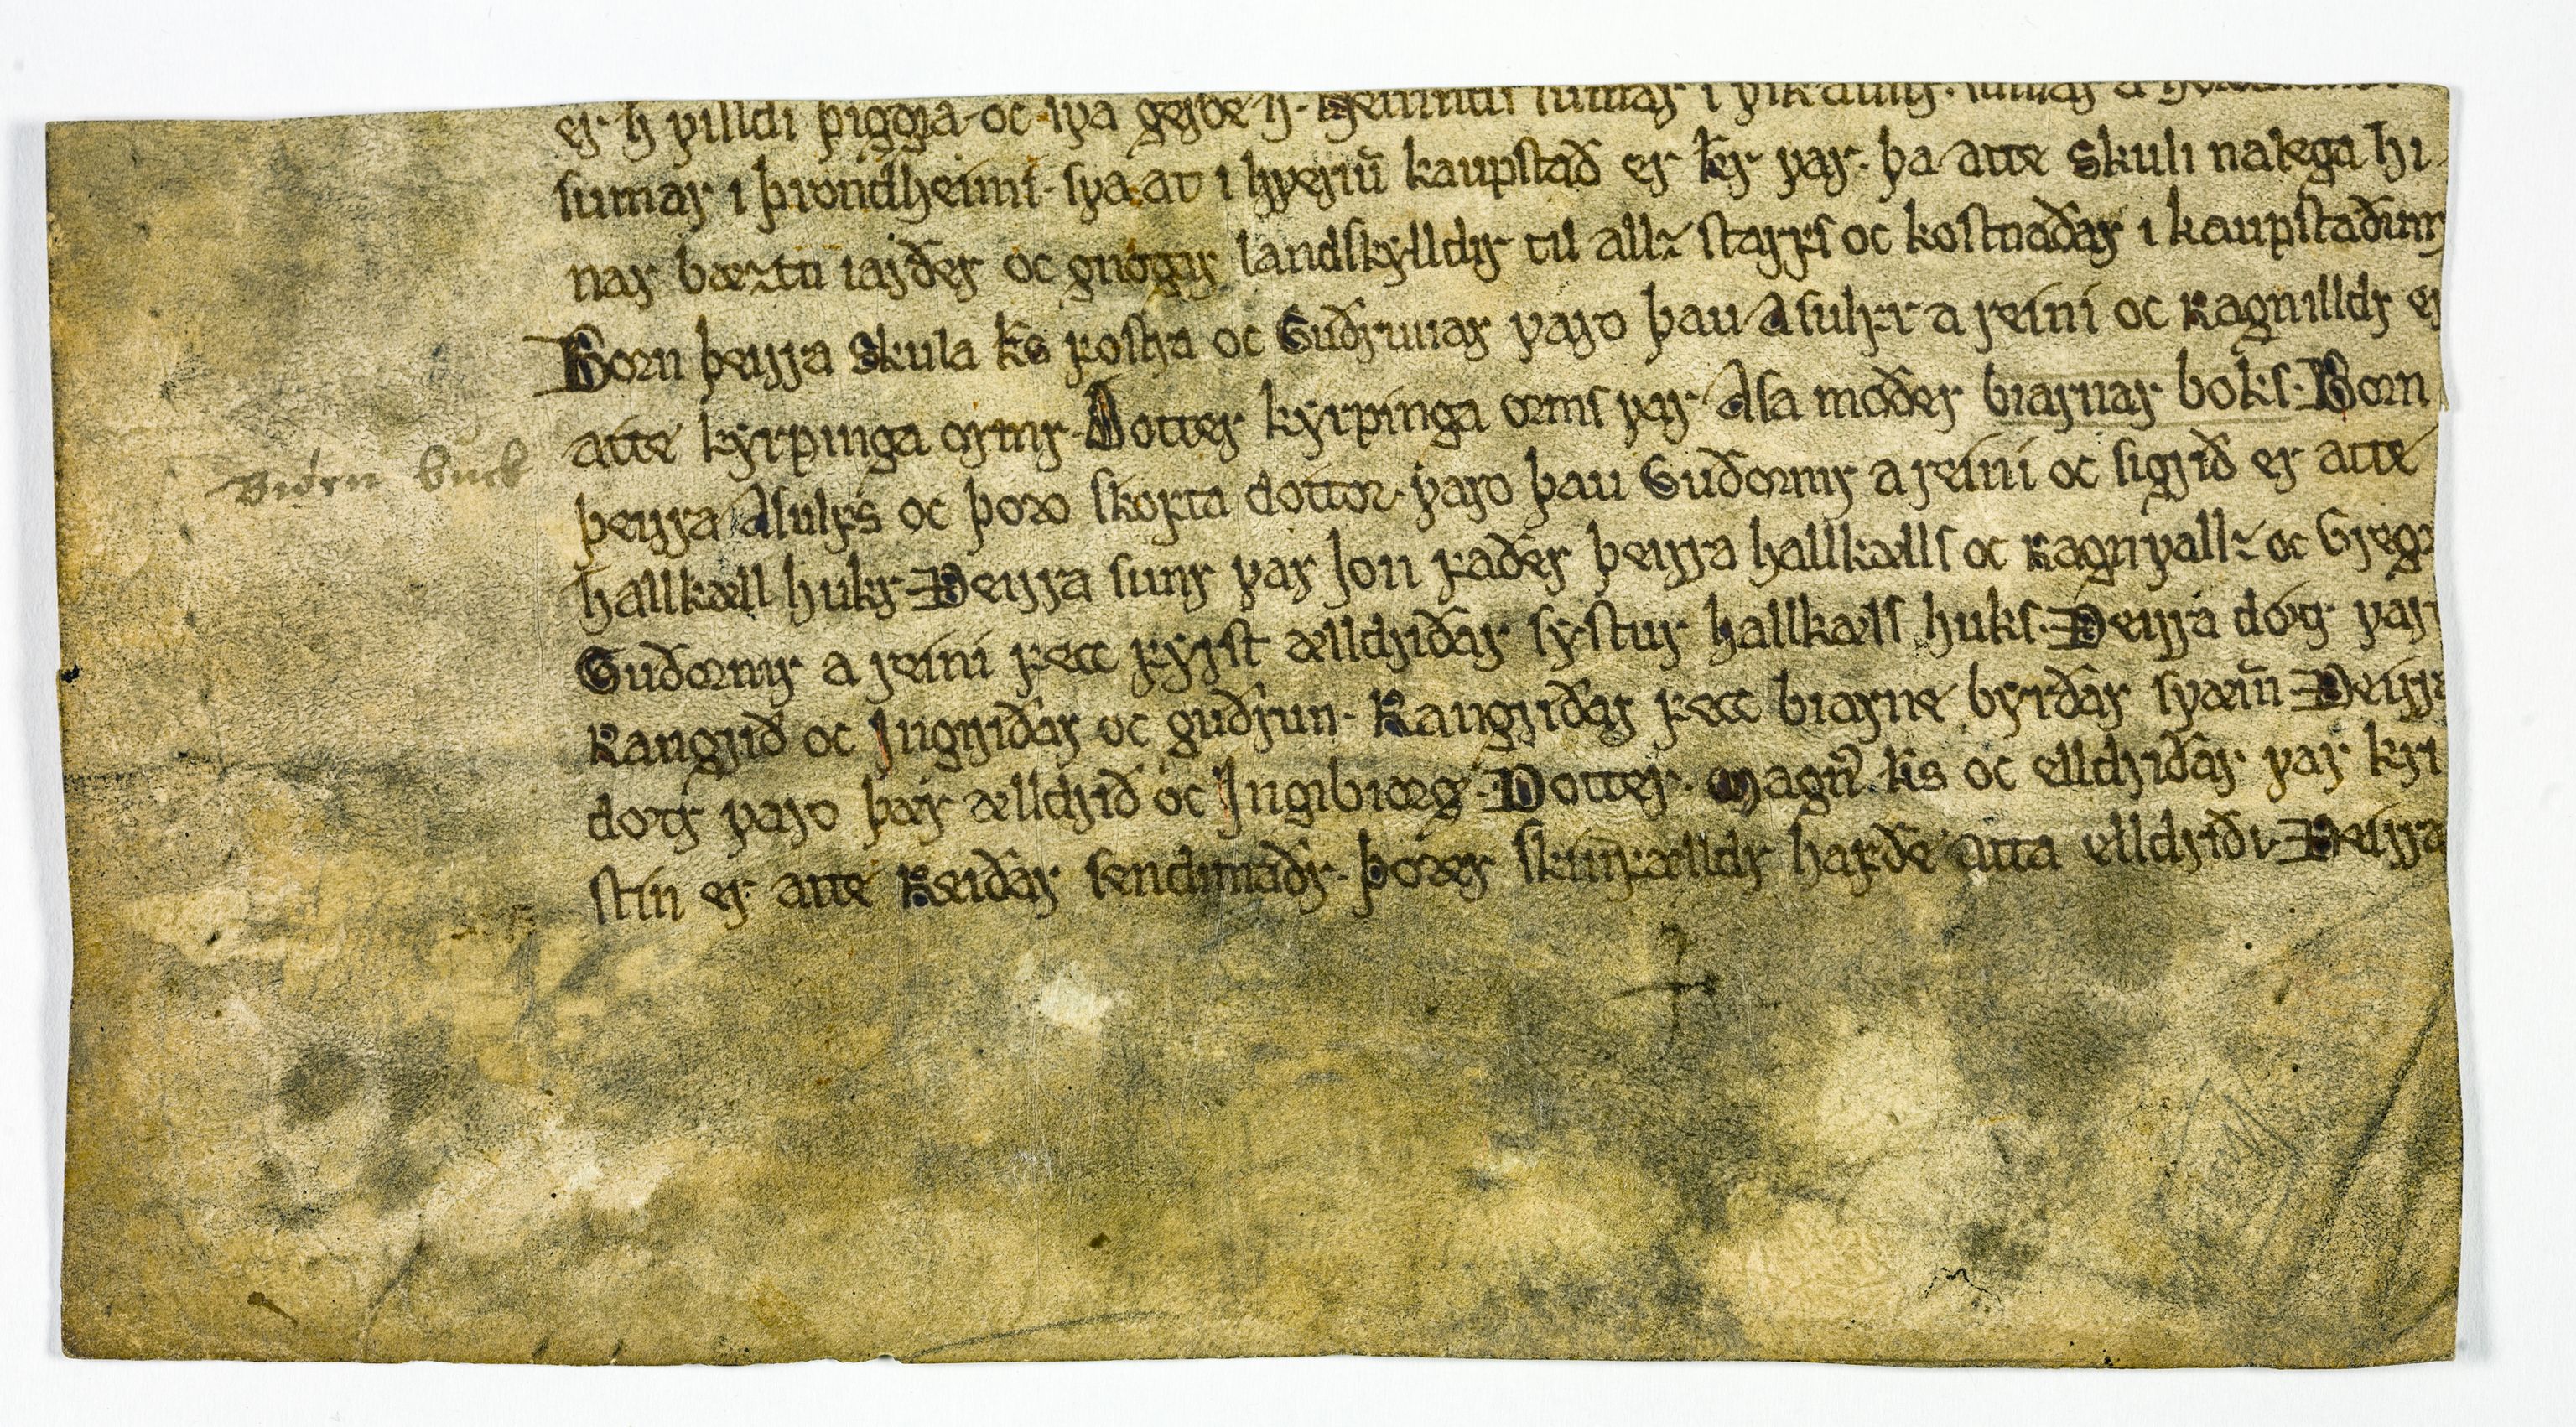 er h villdi þiggia oc sva gerðe h. sumar i vik austr. sumar a
sumar i þrondheimi. sva at i hveriu̅ kaupstað er kr̅ var. þa atte Skuli nalega hi
nar bæztu iarðer oc gnogar landskylldir til allz starfs oc kostnaðar i kaupstaðum
Born þeirra Skula k̅s fostra oc Guðrunar varo þau Asulfr a reini oc Ragnilldr er
atte kyrpinga ormr. Dotter kyrpinga orms var Asa moðer biarnar boks. Born
þeirra Asulfs oc þoro skofta dottor varo þau Guðormr a reini oc sigrið er atte
hallkæll hukr. Þeirra sunr var Jon faðer þeirra hallkælls oc Ragnvallz oc Gregr
Guðormr a reini fecc fyrst ælldriðar systur hallkæls huks. Þeirra dótr var
Rangrið oc Jngriðar oc guðrun. Rangriðar fecc biarne byrðar svæin. Þeirra
dotr varo þár ælldrið oc Jngibiærg. Dotter. Magn᷒ k̅s oc elldriðar var kri
stin er atte Reiðar sendimaðr. þorer skinfælldr hafðe átta elldriði. Þeirra
Biørn buck